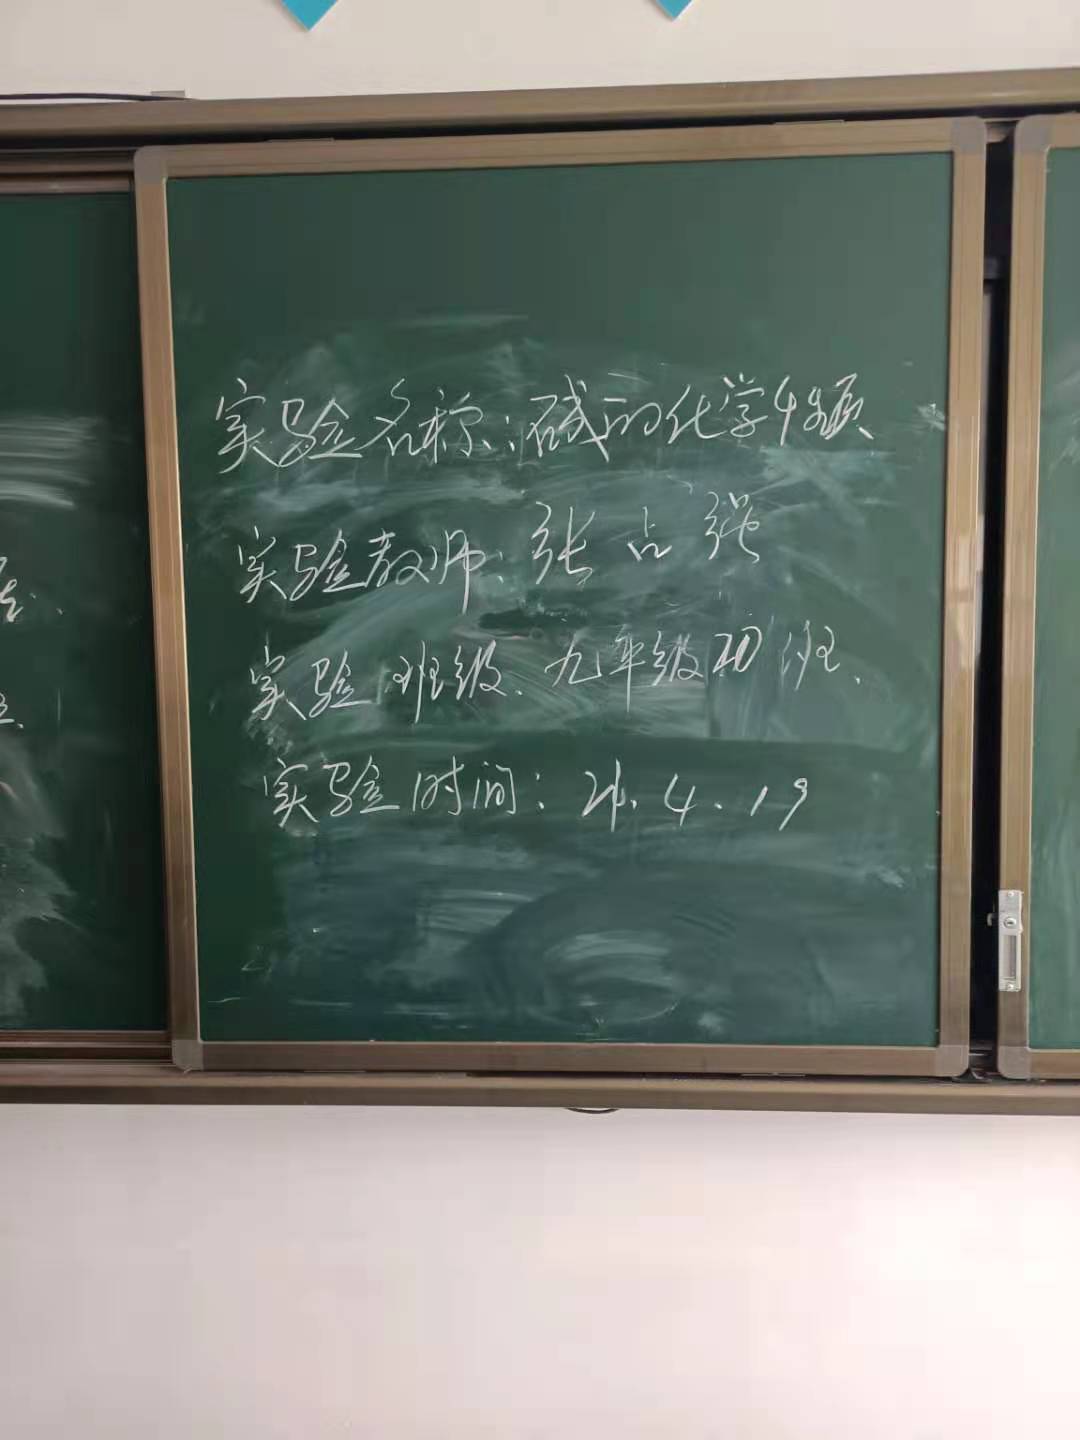 实验名称:碱的化学性质
实验教师:张占强
实验班级、九年级 班
实验时间:21.4.19